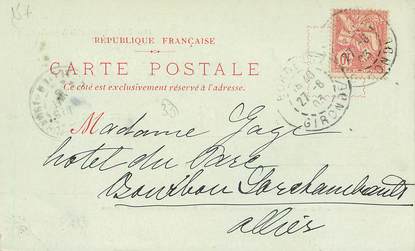 15+
RÉPUBLIQUE FRANÇAISE
CARTE POSTALE
Ce côté est exclusivement réservé à l'adresse.
BORDEAUX
27-8
03
GIRONDE
Madame Gage
hotel du Parc
Bourbon Larchambault
allier